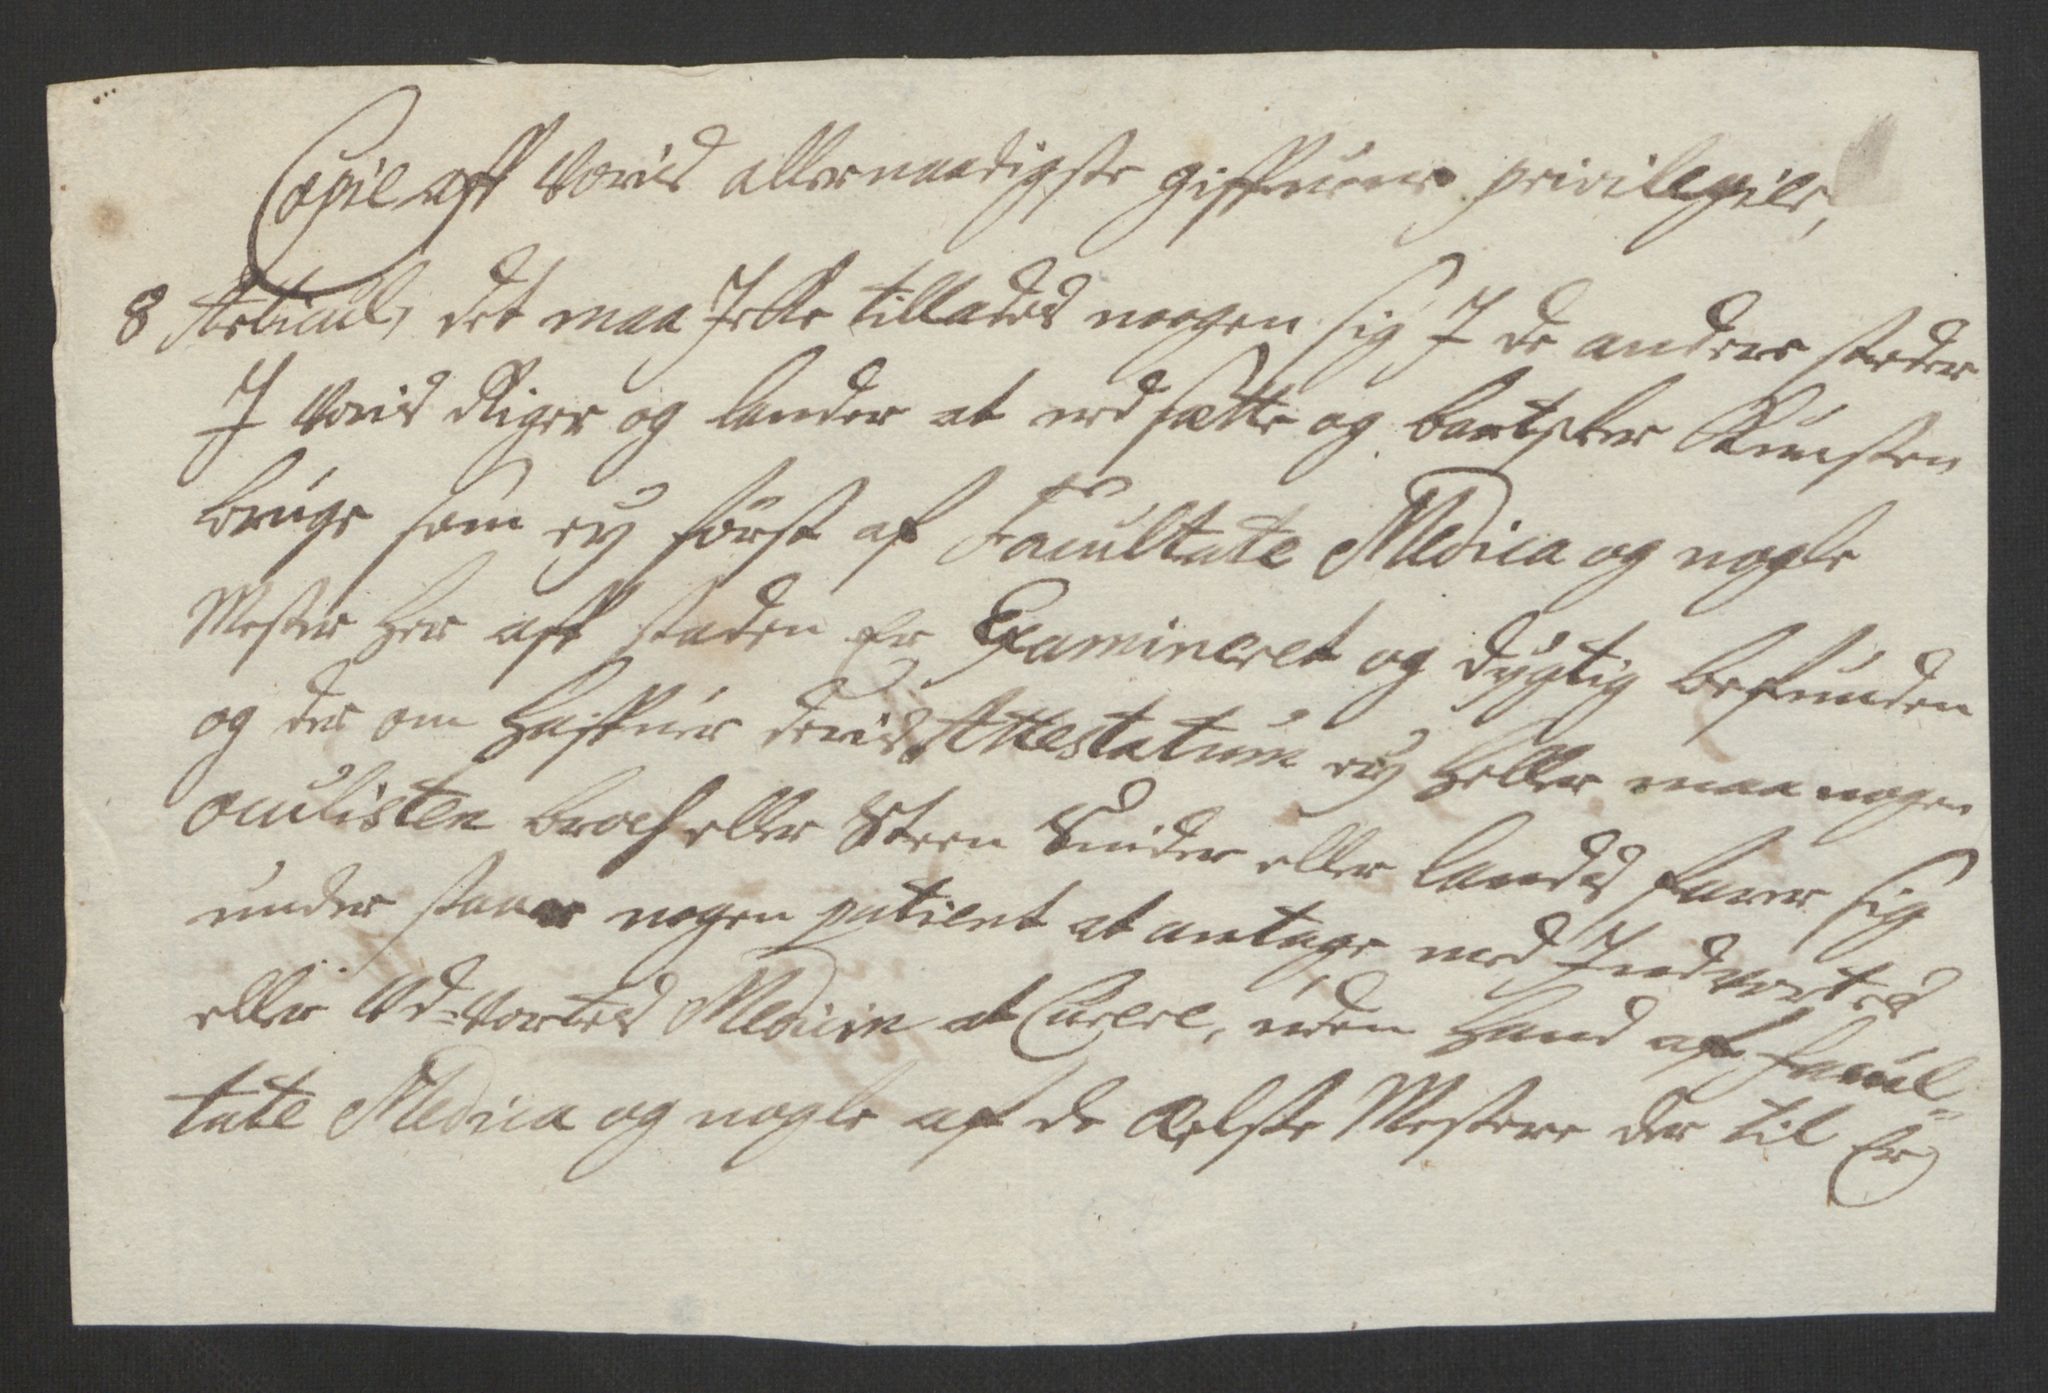 Copie aff Voris allernaadigste giffuene privilegier,
8 Articul, det maa Icke tillades nogen sig I de andre steder
I Voris Riger og lander at ned sætte og bartsker Kunsten
bruge som ey først af Facultate Medica og nogle
Mester her aff staden er Examineret og dygtig befunden
og der om haffuer deris Attestatum ey heller maa nogen
oculisten broch eller Steen Snider eller lands farer sig
under staae nogen patient at antage med Indvortes
eller Ud-Vortes Medicin at Curere, uden hand af Facul-
tate Medica og nogle af de Ælste Mestere der til Er